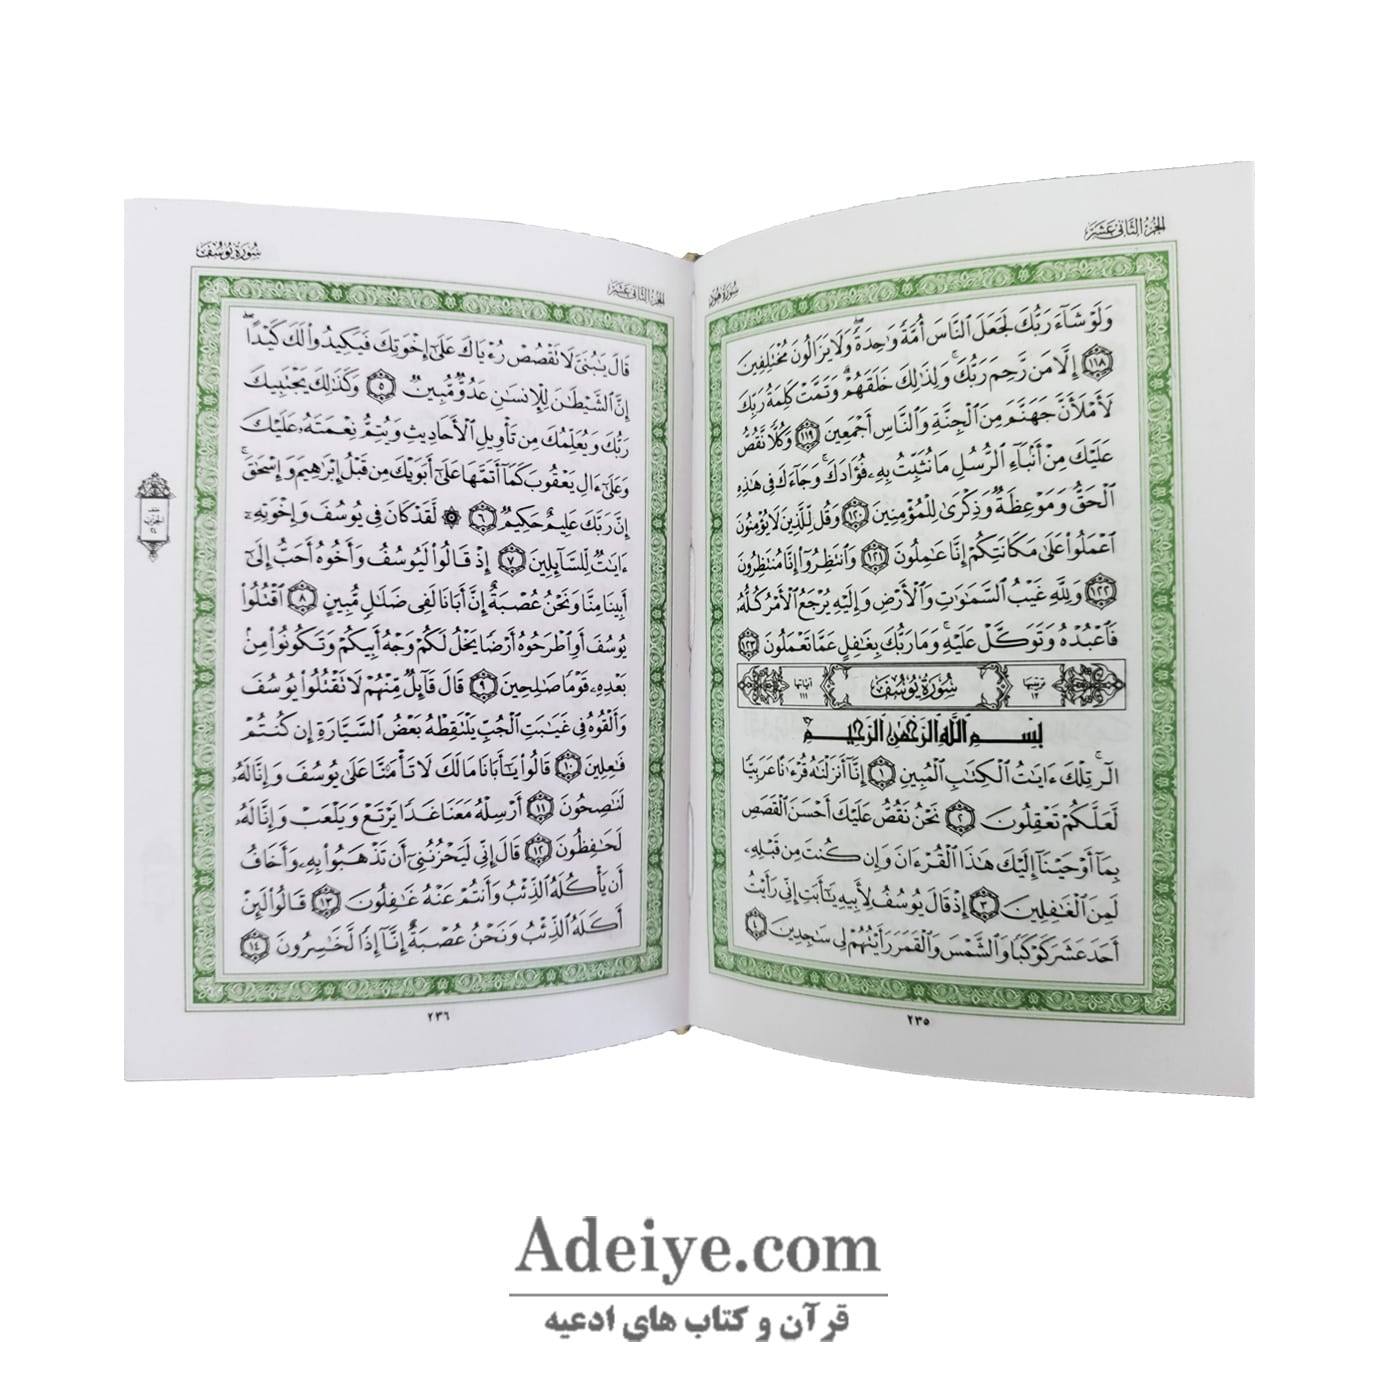 الجزء الثاني عشر
سورة هود
وَلَوْ شَآءَ رَبُّكَ لَجَعَلَ ٱلنَّاسَ أُمَّةً وَٰحِدَةً ۖ وَلَا يَزَالُونَ مُخْتَلِفِينَ
١١٨ إِلَّا مَن رَّحِمَ رَبُّكَ ۚ وَلِذَٰلِكَ خَلَقَهُمْ ۗ وَتَمَّتْ كَلِمَةُ رَبِّكَ
لَأَمْلَأَنَّ جَهَنَّمَ مِنَ ٱلْجِنَّةِ وَٱلنَّاسِ أَجْمَعِينَ ١١٩ وَكُلًّا نَّقُصُّ
عَلَيْكَ مِنْ أَنۢبَآءِ ٱلرُّسُلِ مَا نُثَبِّتُ بِهِۦ فُؤَادَكَ ۚ وَجَآءَكَ فِى هَٰذِهِ
ٱلْحَقُّ وَمَوْعِظَةٌ وَذِكْرَىٰ لِلْمُؤْمِنِينَ ١٢٠ وَقُل لِّلَّذِينَ لَا يُؤْمِنُونَ
ٱعْمَلُوا۟ عَلَىٰ مَكَانَتِكُمْ إِنَّا عَٰمِلُونَ ١٢١ وَٱنتَظِرُوٓا۟ إِنَّا مُنتَظِرُونَ
١٢٢ وَلِلَّهِ غَيْبُ ٱلسَّمَٰوَٰتِ وَٱلْأَرْضِ وَإِلَيْهِ يُرْجَعُ ٱلْأَمْرُ كُلُّهُۥ
فَٱعْبُدْهُ وَتَوَكَّلْ عَلَيْهِ ۚ وَمَا رَبُّكَ بِغَٰفِلٍ عَمَّا تَعْمَلُونَ ١٢٣
ترتيبها ١٢ سُورَةُ يُوسُفَ آياتها ١١١
بِسْمِ ٱللَّهِ ٱلرَّحْمَٰنِ ٱلرَّحِيمِ
الٓر ۚ تِلْكَ ءَايَٰتُ ٱلْكِتَٰبِ ٱلْمُبِينِ ١ إِنَّآ أَنزَلْنَٰهُ قُرْءَٰنًا عَرَبِيًّا
لَّعَلَّكُمْ تَعْقِلُونَ ٢ نَحْنُ نَقُصُّ عَلَيْكَ أَحْسَنَ ٱلْقَصَصِ
بِمَآ أَوْحَيْنَآ إِلَيْكَ هَٰذَا ٱلْقُرْءَانَ وَإِن كُنتَ مِن قَبْلِهِۦ
لَمِنَ ٱلْغَٰفِلِينَ ٣ إِذْ قَالَ يُوسُفُ لِأَبِيهِ يَٰٓأَبَتِ إِنِّى رَأَيْتُ
أَحَدَ عَشَرَ كَوْكَبًا وَٱلشَّمْسَ وَٱلْقَمَرَ رَأَيْتُهُمْ لِى سَٰجِدِينَ ٤
٢٣٥
الجزء الثاني عشر
سورة يوسف
قَالَ يَٰبُنَىَّ لَا تَقْصُصْ رُءْيَاكَ عَلَىٰٓ إِخْوَتِكَ فَيَكِيدُوا۟ لَكَ كَيْدًا ۖ
إِنَّ ٱلشَّيْطَٰنَ لِلْإِنسَٰنِ عَدُوٌّ مُّبِينٌ ٥ وَكَذَٰلِكَ يَجْتَبِيكَ
رَبُّكَ وَيُعَلِّمُكَ مِن تَأْوِيلِ ٱلْأَحَادِيثِ وَيُتِمُّ نِعْمَتَهُۥ عَلَيْكَ
وَعَلَىٰٓ ءَالِ يَعْقُوبَ كَمَآ أَتَمَّهَا عَلَىٰٓ أَبَوَيْكَ مِن قَبْلُ إِبْرَٰهِيمَ وَإِسْحَٰقَ ۚ
إِنَّ رَبَّكَ عَلِيمٌ حَكِيمٌ ٦ ۞ لَّقَدْ كَانَ فِى يُوسُفَ وَإِخْوَتِهِۦٓ
ءَايَٰتٌ لِّلسَّآئِلِينَ ٧ إِذْ قَالُوا۟ لَيُوسُفُ وَأَخُوهُ أَحَبُّ إِلَىٰٓ
أَبِينَا مِنَّا وَنَحْنُ عُصْبَةٌ إِنَّ أَبَانَا لَفِى ضَلَٰلٍ مُّبِينٍ ٨ ٱقْتُلُوا۟
يُوسُفَ أَوِ ٱطْرَحُوهُ أَرْضًا يَخْلُ لَكُمْ وَجْهُ أَبِيكُمْ وَتَكُونُوا۟ مِنۢ
بَعْدِهِۦ قَوْمًا صَٰلِحِينَ ٩ قَالَ قَآئِلٌ مِّنْهُمْ لَا تَقْتُلُوا۟ يُوسُفَ
وَأَلْقُوهُ فِى غَيَٰبَتِ ٱلْجُبِّ يَلْتَقِطْهُ بَعْضُ ٱلسَّيَّارَةِ إِن كُنتُمْ
فَٰعِلِينَ ١٠ قَالُوا۟ يَٰٓأَبَانَا مَا لَكَ لَا تَأْمَ۫نَّا عَلَىٰ يُوسُفَ وَإِنَّا لَهُۥ
لَنَٰصِحُونَ ١١ أَرْسِلْهُ مَعَنَا غَدًا يَرْتَعْ وَيَلْعَبْ وَإِنَّا لَهُۥ
لَحَٰفِظُونَ ١٢ قَالَ إِنِّى لَيَحْزُنُنِىٓ أَن تَذْهَبُوا۟ بِهِۦ وَأَخَافُ
أَن يَأْكُلَهُ ٱلذِّئْبُ وَأَنتُمْ عَنْهُ غَٰفِلُونَ ١٣ قَالُوا۟ لَئِنْ
أَكَلَهُ ٱلذِّئْبُ وَنَحْنُ عُصْبَةٌ إِنَّآ إِذًا لَّخَٰسِرُونَ ١٤
نصف
الحزب
٢٤
٢٣٦
Adeiye.com
قرآن و کتاب های ادعیه